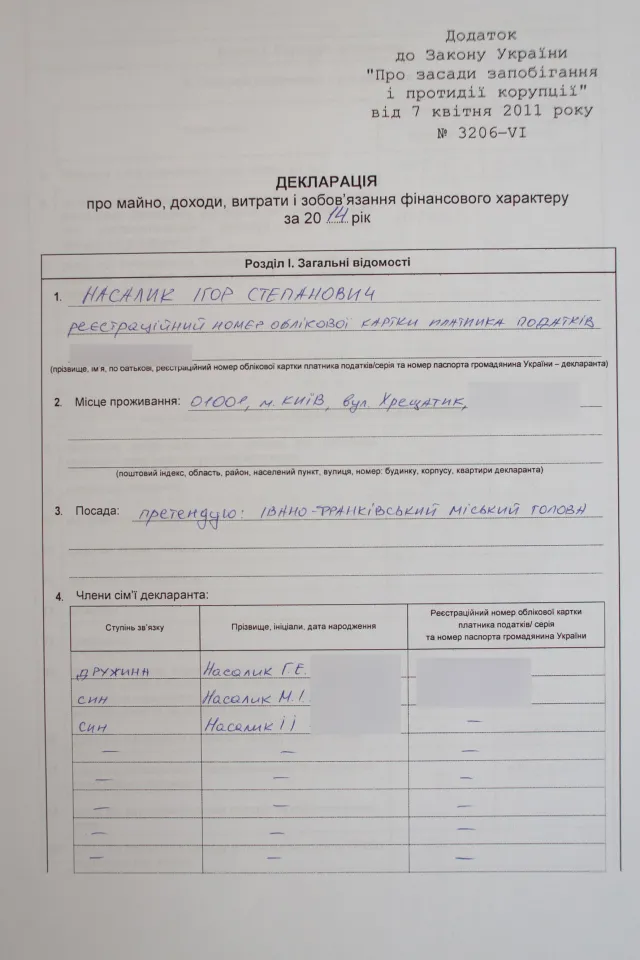 Додаток
до Закону України
"Про засади запобігання
і протидії корупції"
від 7 квітня 2011 року
№ 3206-VI
ДЕКЛАРАЦІЯ
про майно, доходи, витрати і зобов'язання фінансового характеру
за 2014 рік
Розділ І. Загальні відомості
1. НАСАЛИК ІГОР СТЕПАНОВИЧ
реєстраційний номер облікової картки платника податків
(прізвище, ім'я, по батькові, реєстраційний номер облікової картки платника податків/серія та номер паспорта громадянина України – декларанта)
2. Місце проживання: 01001, м. Київ, вул. Хрещатик,
(поштовий індекс, область, район, населений пункт, вулиця, номер: будинку, корпусу, квартири декларанта)
3. Посада: претендую: Івано-Франківський міський голова
4. Члени сім'ї декларанта:
Ступінь зв'язку Прізвище, ініціали, дата народження Реєстраційний номер облікової картки
платника податків/ серія
та номер паспорта громадянина України
дружина Насалик Г.Е.
син Насалик М.І.
син Насалик І І —
— — —
— — —
— — —
— — —
— — —